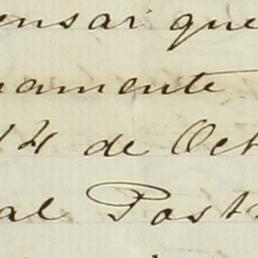 ensar que
namente
14 de Oct
al Post